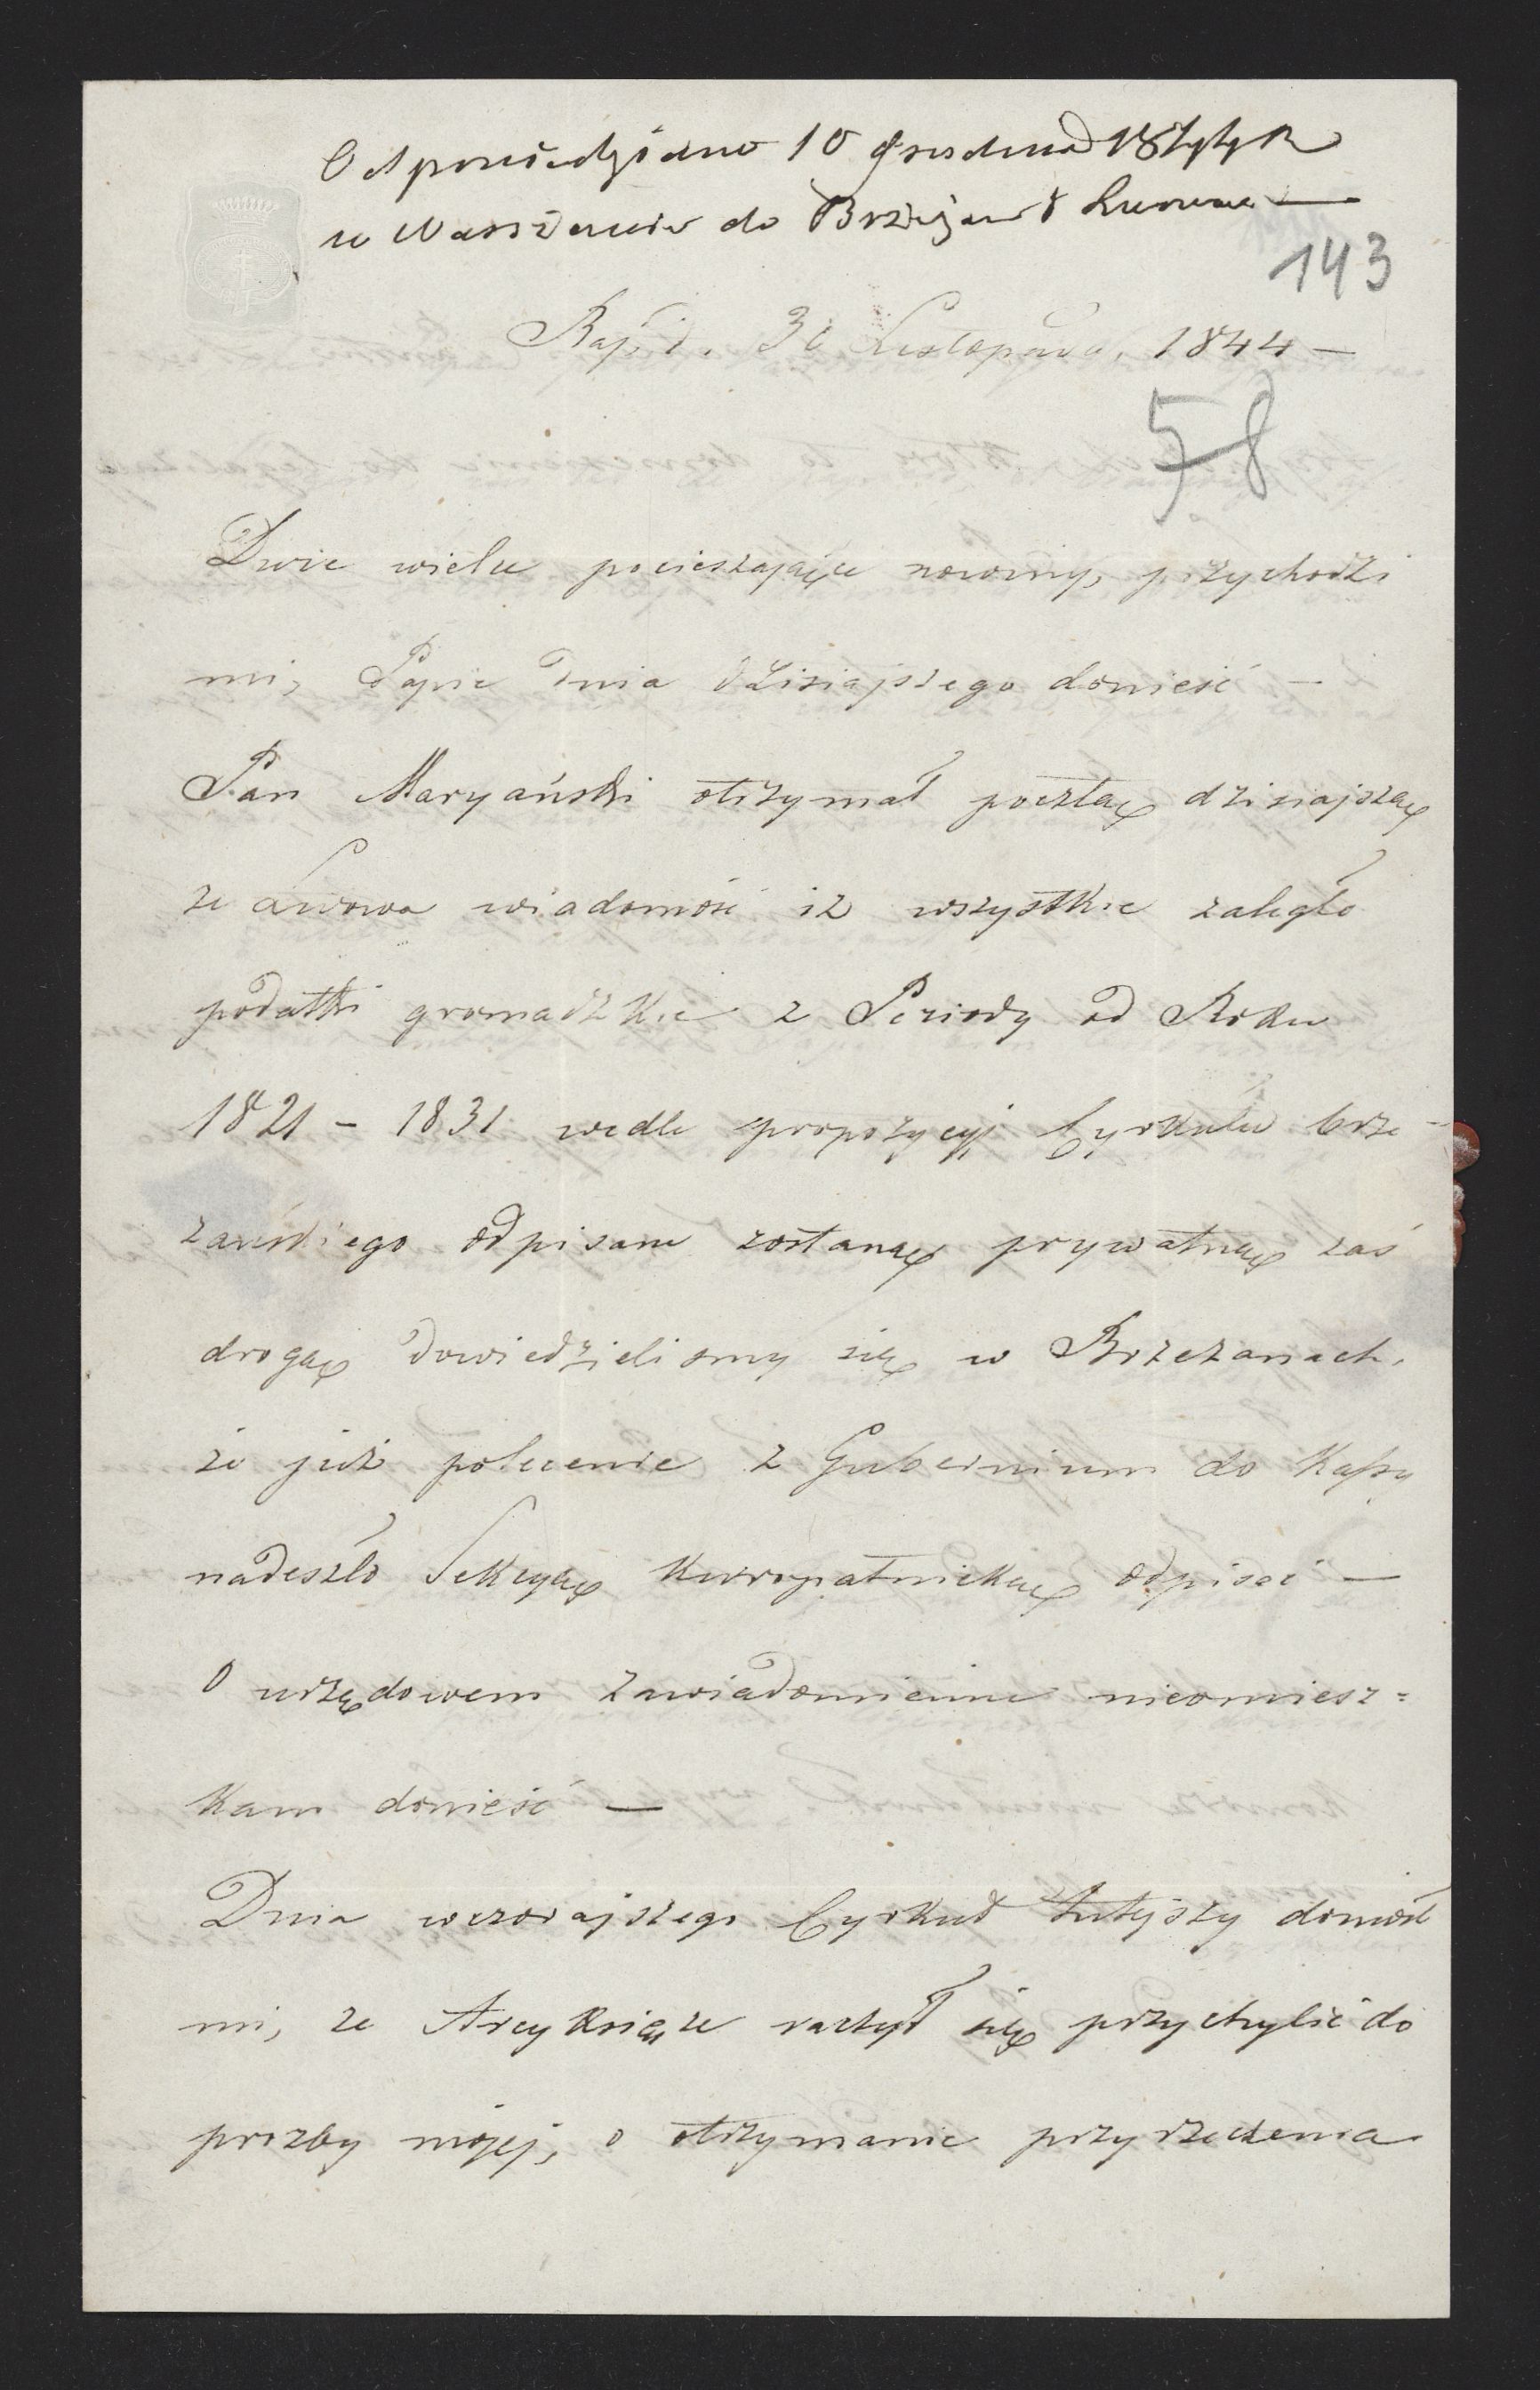 Odpowiedziano 10 Grudnia 1844 R
w Warszawie do Brzeżan
143
30 Listopada, 1844 —
58
Dwie wielce pocieszające nowiny, przychodzi
mi, Panie dnia dzisiajszego donieść —
Pan Maryański otrzymał pocztą dzisiajszą
ze Lwowa wiadomość iż wszystkie zaległe
podatki gromadzkie z Periody od Roku
1821 – 1831 wedle propozycyj Cyrkułu brze-
zańskiego odpisane zostaną prywatną zaś
drogą dowiedzieliśmy się w Brzeżanach,
że już polecenie z Gubernium do Kassy
nadeszło Sekcyą Kuropatnicką odpisać —
O urzędowem zawiadomieniu nieomiesz=
kam donieść —
Dnia wczorajszego Cyrkuł tutejszy doniósł
mi, że Arcyksiąże raczył się przychylić do
prozby mojej, o otrzymanie przyrzeczenia